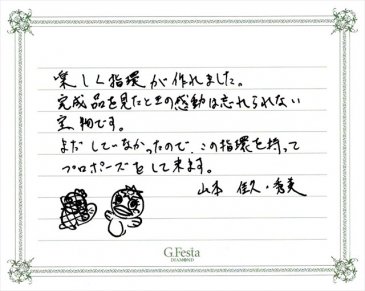 楽しく指環が作れました。
完成品を見たときの感動は忘れられない
宝物です。
まだしていなかったので、この指環を持って
プロポーズをして来ます。
山本 佳久・秀美
G.Festa
DIAMOND